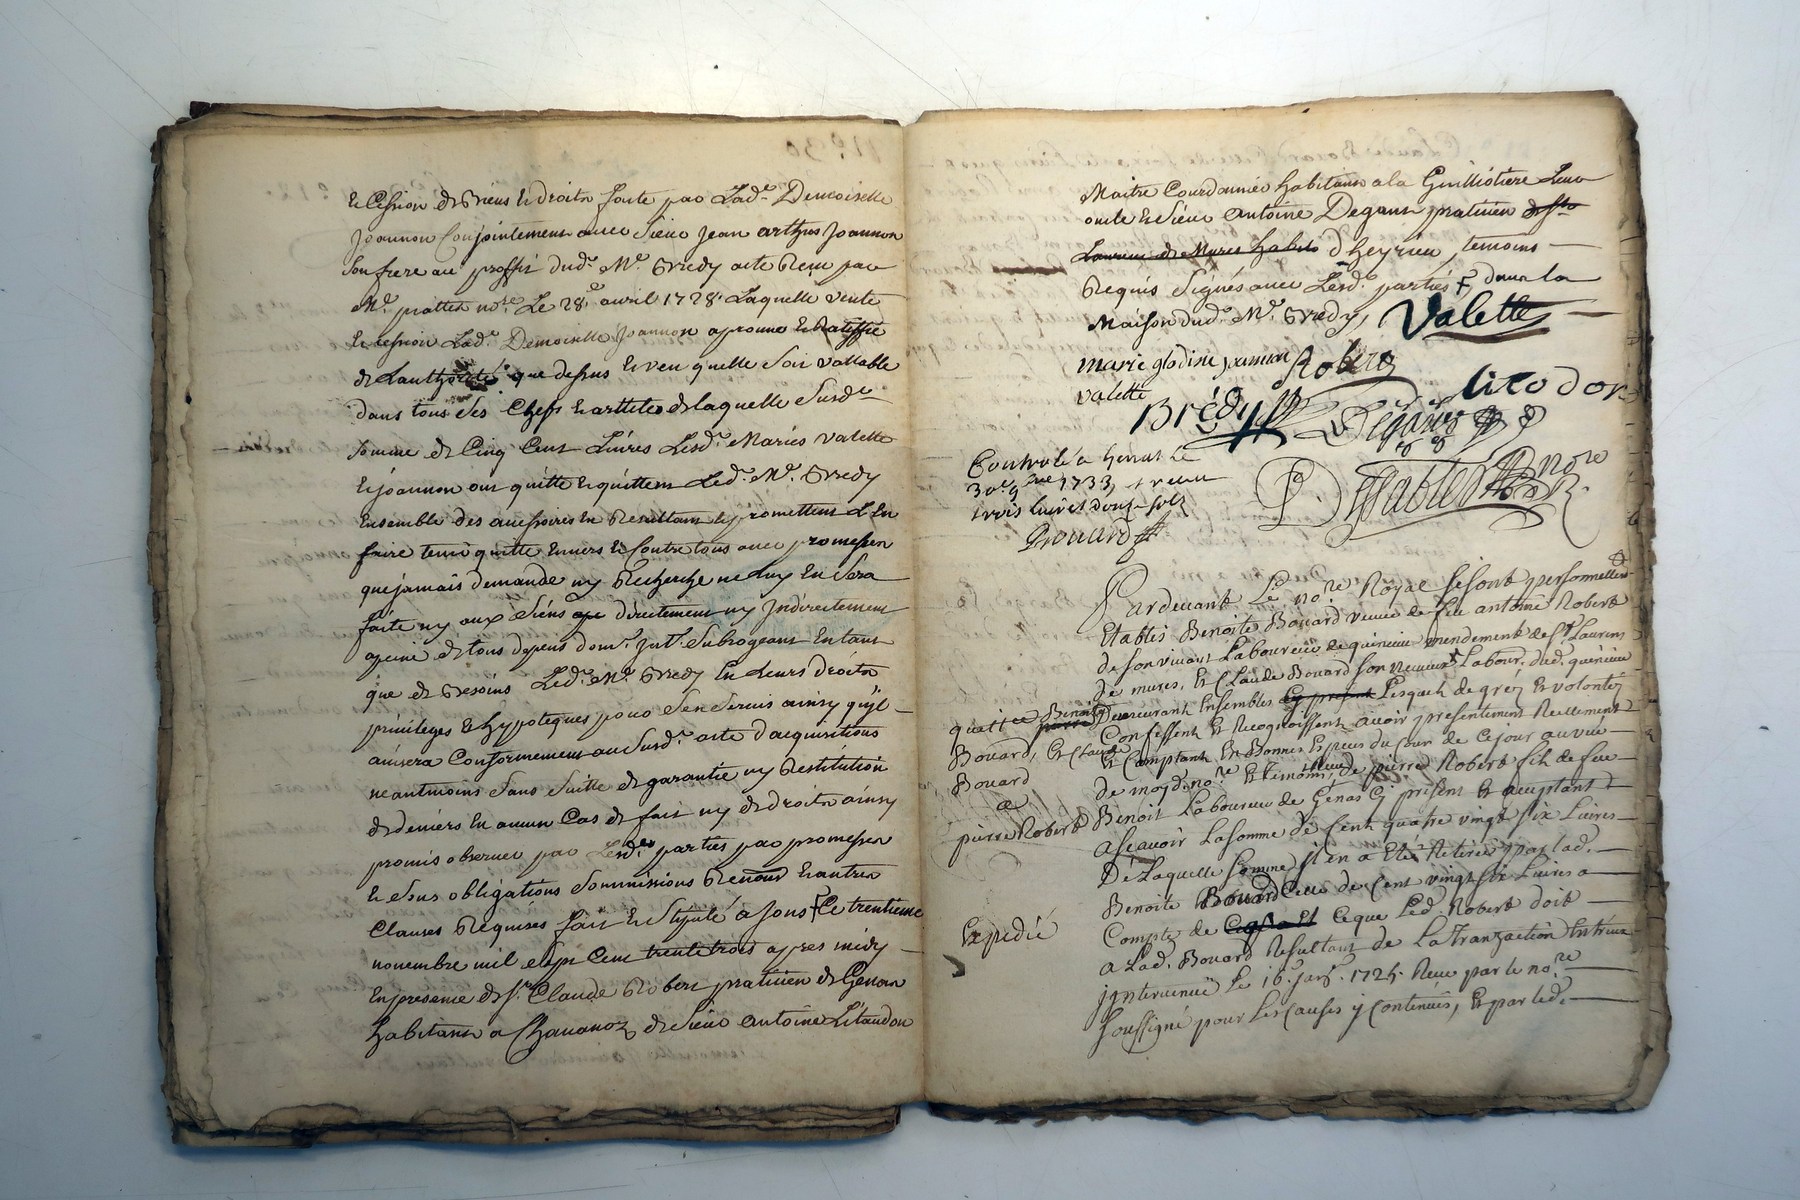 et Cession de biens et droits faite par Lade. Demoiselle
Joannon Conjointement avec Sieur Jean arthus Joannon
son frere au proffit dud. Me. Bredy acte Reçu par
Me. prattet nore. Le 28e. avril 1728. Laquelle vente
et cession Lade. Demoiselle Joannon aprouve et Ratiffie
de Lauthorité que dessus et veu quelle soit vallable
dans tous ses Chefs et articles de laquelle susde.
somme de Cinq Cent Livres Lesd. Mariés valette
et joannon ont quitté et quittent Led. Me. Bredy
Ensemble des accessoires En Resultant et promettent L'En
faire tenir quitte Envers et Contre tous avec promesse
que jamais demande ny Recherche ne Luy En Sera
faite ny aux siens directement ny Indirectement
a peine de tous depens dom. int. Subrogeant En tant
que de besoins Led. Me. Bredy En Leurs droits
privileges et hypoteques pour s'en servir ainsy qu'il
avisera Conformement au susd. acte d'acquisitions
neantmoins sans suitte de garantie ny Restitution
de deniers En aucun Cas de fait ny de droits ainsy
promis observer par Lesd. parties par promesses
et sous obligations soummissions Renonç. et autres
Clauses Requises fait et stipulé a Jons Ce trentieme
novembre mil sept Cent trente trois apres midy
En presence de Sr. Claude Robert praticien de Genas
habitant a Chavanoz de Sieur antoine Litaudon
Maitre Courdannier habitant a la Guillotiere
et Sieur antoine Degans praticien
Laurens de Mures habit. d'heyrieu, temoins
Requis Signés avec Lesd. parties dans la
Maison dud. Me. Bredy, Valette
marie glodine joannon Robert
valette
Bredy Degans litodon
Controlé a
30e. 9bre 1733, Receu
trois livres douze sols
P. Dessables nore
Prouard
Pardevant Le nore. Royal se sont personnellem
Etablis Benoite Bouard veuve de feu antoine Robert
de son vivant Laboureur de quenieu mendement de St. Laurens
de mures, et Claude Bouard son neveu Labour. dud. quenieu
Demeurant Ensembles Lesquels de gréz et volontéz
quittce Benoite
Confessent et Recognoissent avoir presentement Reellement
Bouard, et Claude
et Comptant En Bonnes Especes du Cour de ce jour au veüe
Bouard
de moyd. nore. et temoins, de pierre Robert fils de feu
a
Benoit Laboureur de Genas Cy present et acceptant
pierre Robert
a Sçavoir La somme de Cent quatre vingt six Livres
De Laquelle somme il en a Eté Retiré par lad.
Benoite Bouard Celle de Cent vingt six Livres a
Expedié
Compte de Ceque Led. Robert doit
a Lad. Bouard Resultant de La tranzaction Entreux
jntervenüe Le 16. janv. 1725. Reçue par le nore.
soussigné pour les causes y contenües, et par led.